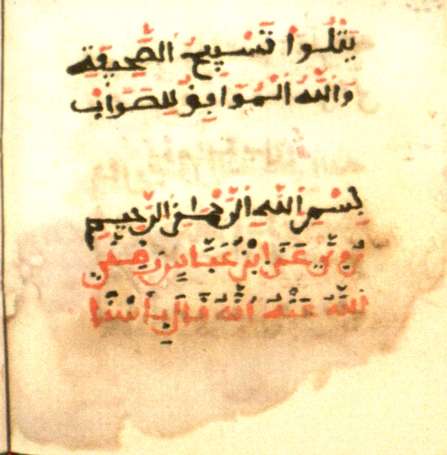 يتلوا تسبيح الصحيفة
والله الموافق للصواب
بسم الله الرحمن الرحيم
روي عن ابن عباس رضي
الله عنه أنه قال